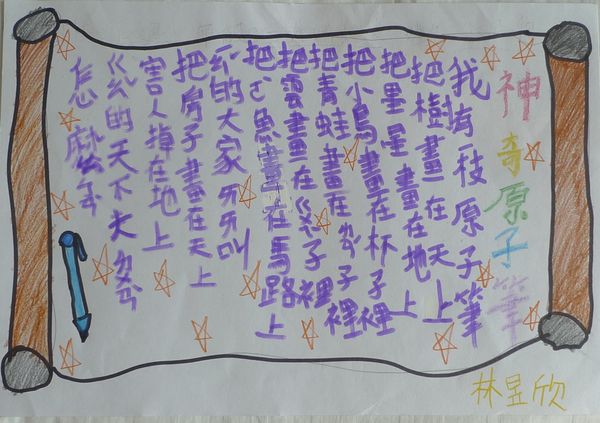 神奇原子筆
我有一枝原子筆
把樹畫在天上
把星星畫在地上
把小鳥畫在杯子裡
把青蛙畫在子裡
把雲畫在子裡
把魚畫在馬路上
的大家叫
把房子畫在天上
害人掉在地上
的天下大
怎麼
林昱欣